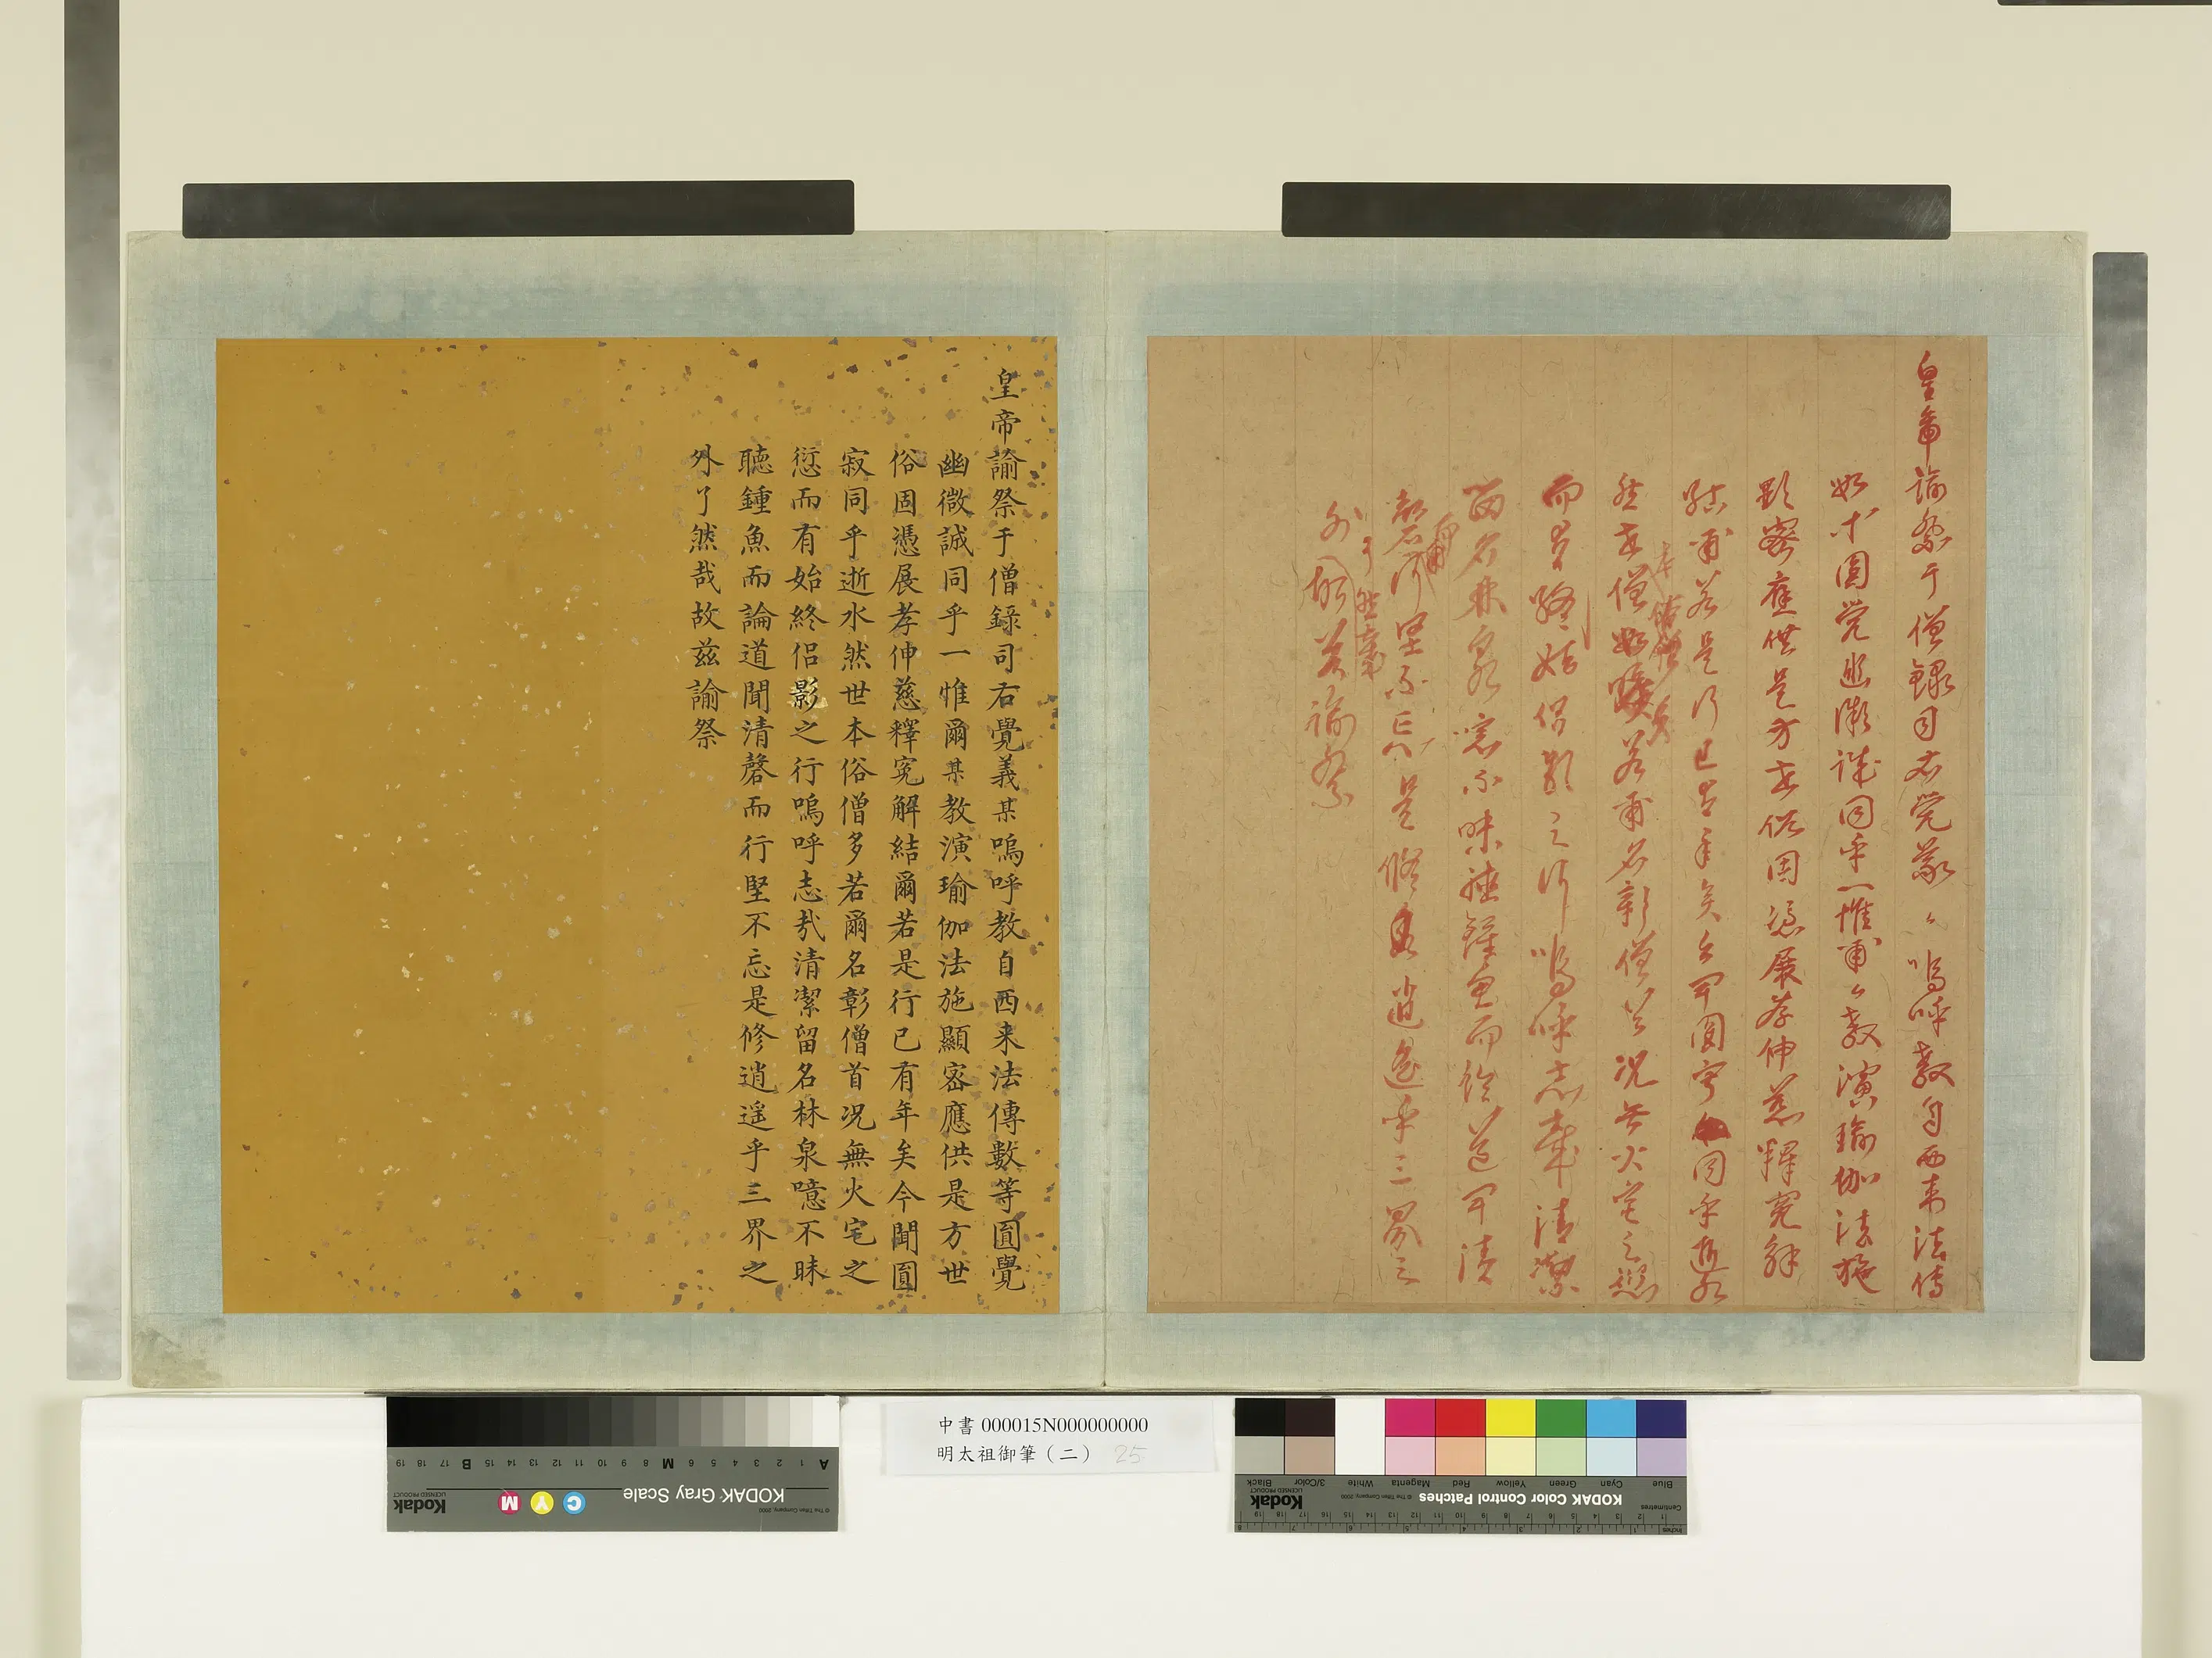 皇帝諭祭于僧錄司右覺義〻嗚呼教自西来法傳
數等圓覺幽微誠同乎一惟爾〻教演瑜伽法施
顯密應供是方世俗固憑展孝伸慈釋冤解
結爾若是行已有年矣今聞圓寂同乎逝水
然世僧若爾名彰僧首况無火宅之愆
而有終始侶影之行嗚呼志哉清潔
留名林泉噫不昧聽鍾魚而論道聞清
磬行堅不忘是修逍遥乎三界之
了然哉
外故茲諭祭
皇帝諭祭于僧錄司右覺義某嗚呼教自西来法傳數等圓覺
幽微誠同乎一惟爾某教演瑜伽法施顯密應供是方世
俗固憑展孝伸慈釋冤解結爾若是行已有年矣今聞圓
寂同乎逝水然世本俗僧多若爾名彰僧首况無火宅之
愆而有始終侶影之行嗚呼志哉清潔留名林泉噫不昧
聴鍾魚而論道聞清磬而行堅不忘是修逍遥乎三界之
外了然哉故茲諭祭
中書 000015N000000000
明太祖御筆（二） 25
KODAK Gray Scale
Kodak
LICENSED PRODUCT
C Y M
© The Tiffen Company, 2000
A 1 2 3 4 5 6 M 8 9 10 11 12 13 14 15 B 17 18 19
KODAK Color Control Patches
Kodak
LICENSED PRODUCT
© The Tiffen Company, 2000
Blue Cyan Green Yellow Red Magenta White 3/Color Black
Inches
Centimetres